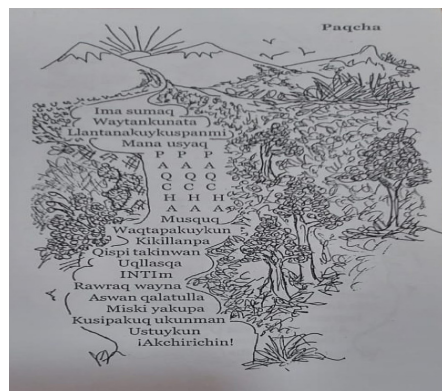 Paqcha
Ima sumaq
Waytankunata
Llantanakuykuspanmi
Mana usyaq
P P P
A A A
Q Q Q
C C C
H H H
A A A,
Musquq
Waqtapakuykun
Kikillanpa
Qispi takinwan
Uqllasqa
INTIm
Rawraq wayna
Aswan qalatulla
Miski yakupa
Kusipakuq ukunman
Ustuykun
¡Akchirichin!